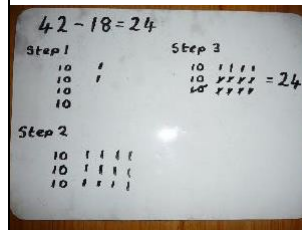 42 - 18 = 24
Step 1
10 I
10 I
10
10
Step 2
10 I I I I
10 I I I I
10 I I I I
Step 3
10 I I I I
10 = 24
10